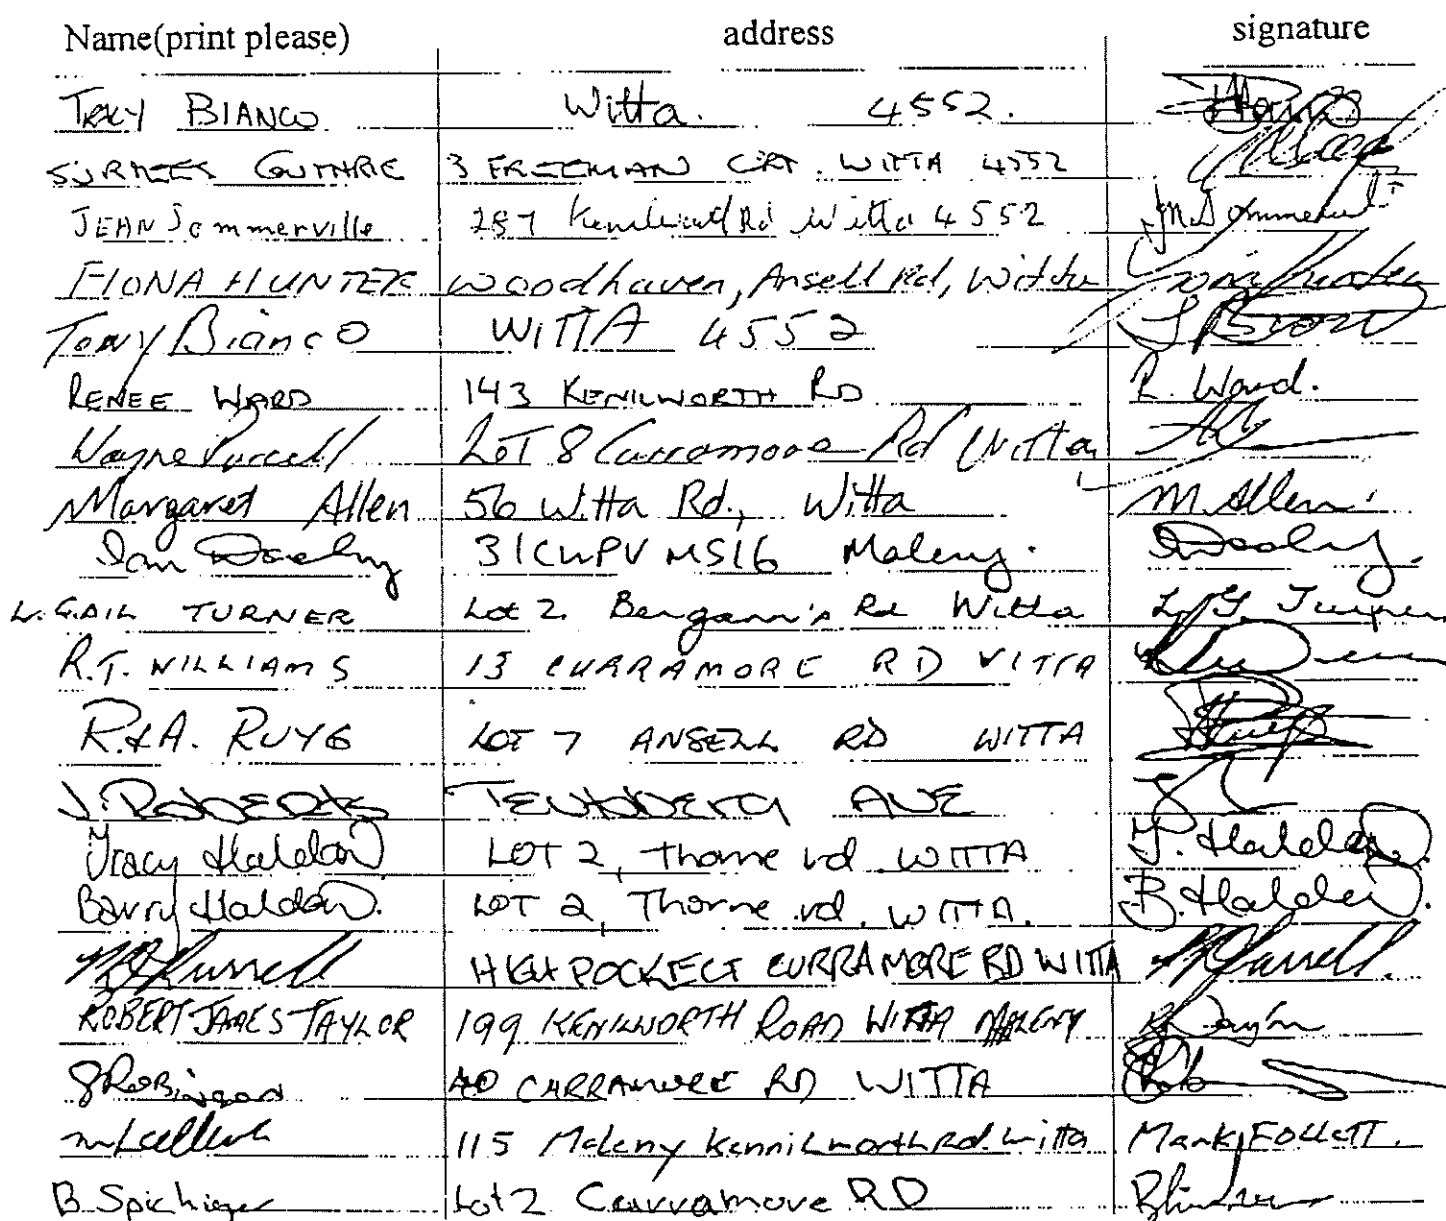 Name(print please) address signature
TRACY BIANCO Witta. 4552.
GUTHRIE 3 FREEMAN CRT. WITTA 4552
JEAN Sommerville 287 Kenilworth Rd Witta 4552
FIONA HUNTER Woodhaven, Ansell Rd, Witta Fiona Hunter
Tony Bianco WITTA 4552
RENEE WARD 143 KENILWORTH RD R. Ward.
Wayne Purcell LOT 8 Curramore Rd Witta
Margaret Allen 56 Witta Rd., Witta M. Allen
Ian Dooley MS16 Maleny. Dooley.
L. GAIL TURNER Lot 2 Rd Witta L. G. Turner
R.T. WILLIAMS 13 CURRAMORE RD WITTA
R.&A. RUYG LOT 7 ANSELL RD WITTA
J. ROBERTS AVE
Tracy Haldan LOT 2, Thorne rd WITTA T. Haldan
Barry Haldan. LOT 2, Thorne rd. WITTA. B. Haldan.
HIGH POCKECT CURRAMORE RD WITTA
ROBERT JAMES TAYLOR 199 KENILWORTH ROAD WITTA MALENY
ROBINSON 40 CARRAMORE RD WITTA
115 Maleny Kennilworth Rd. Witta Mark FOLLETT.
B. Spichiger Lot 2 Curramore RD